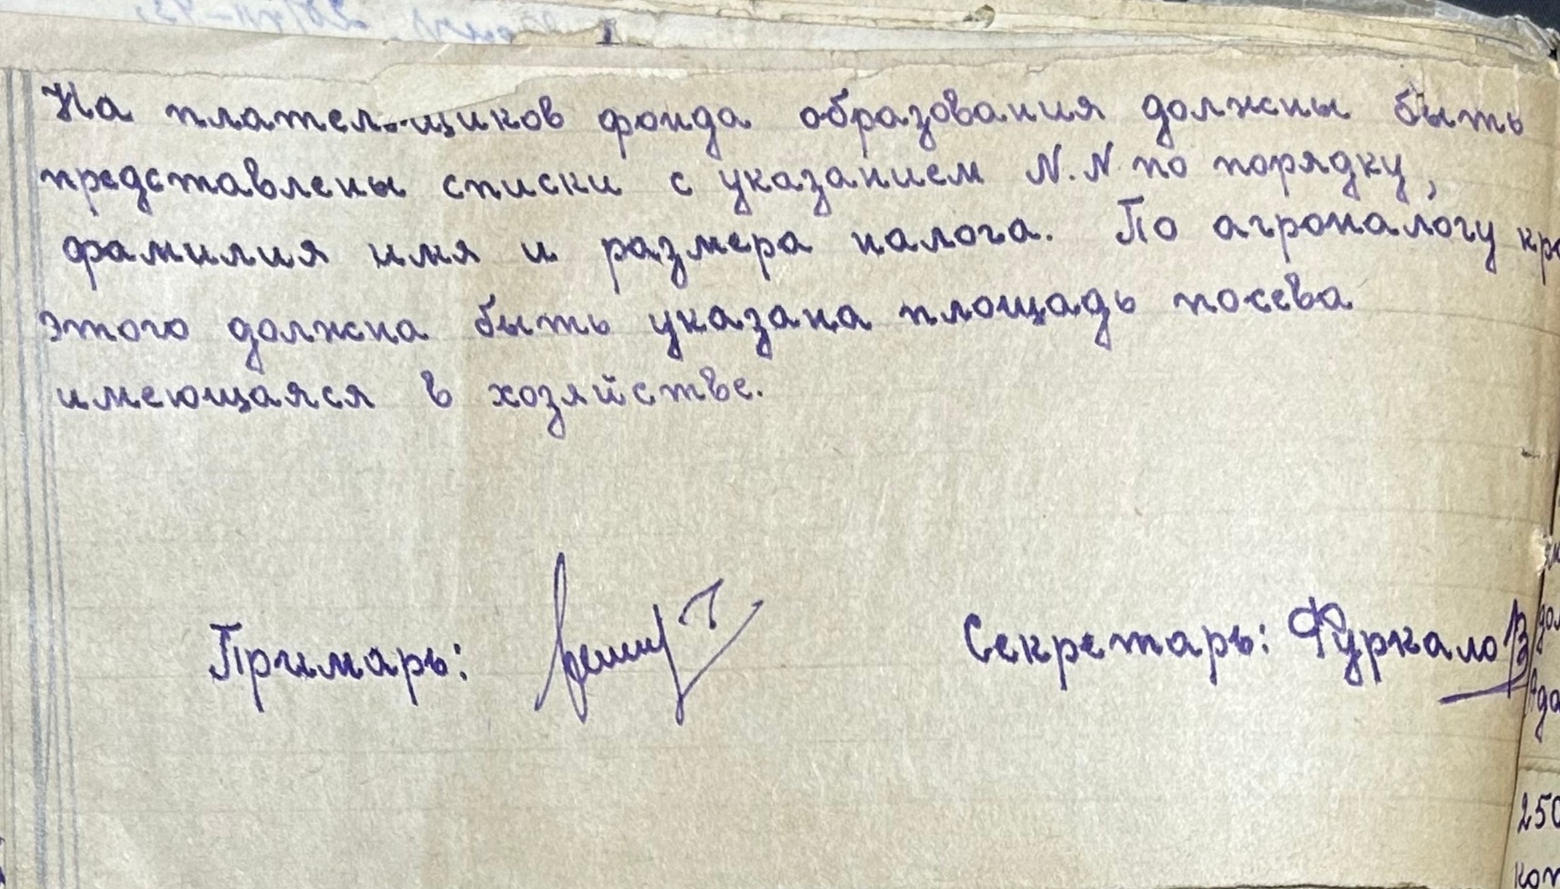 На плательщиков фонда образования должны быть
представлены списки с указанием N.N. по порядку,
фамилия имя и размера налога. По агроналогу кро
этого должна быть указана площадь посева
имеющаяся в хозяйстве.
Примарь: Секретарь: Фуркало В
250